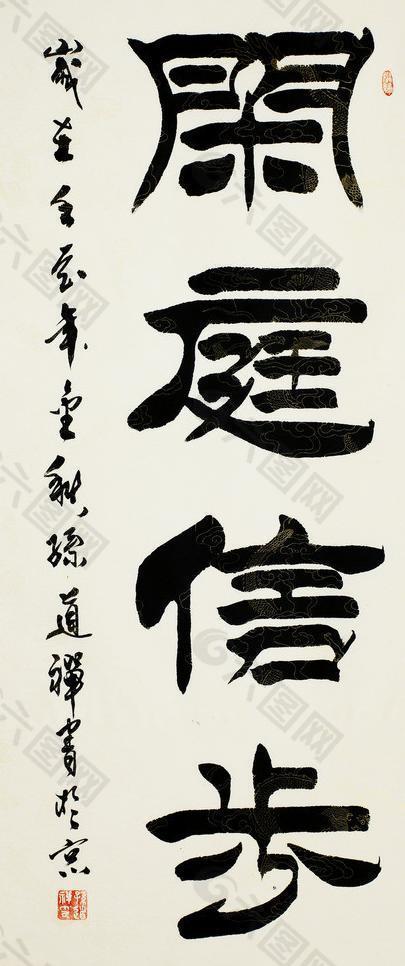 閑庭信步
歲在壬年金秋孫道禪書於京
六图网